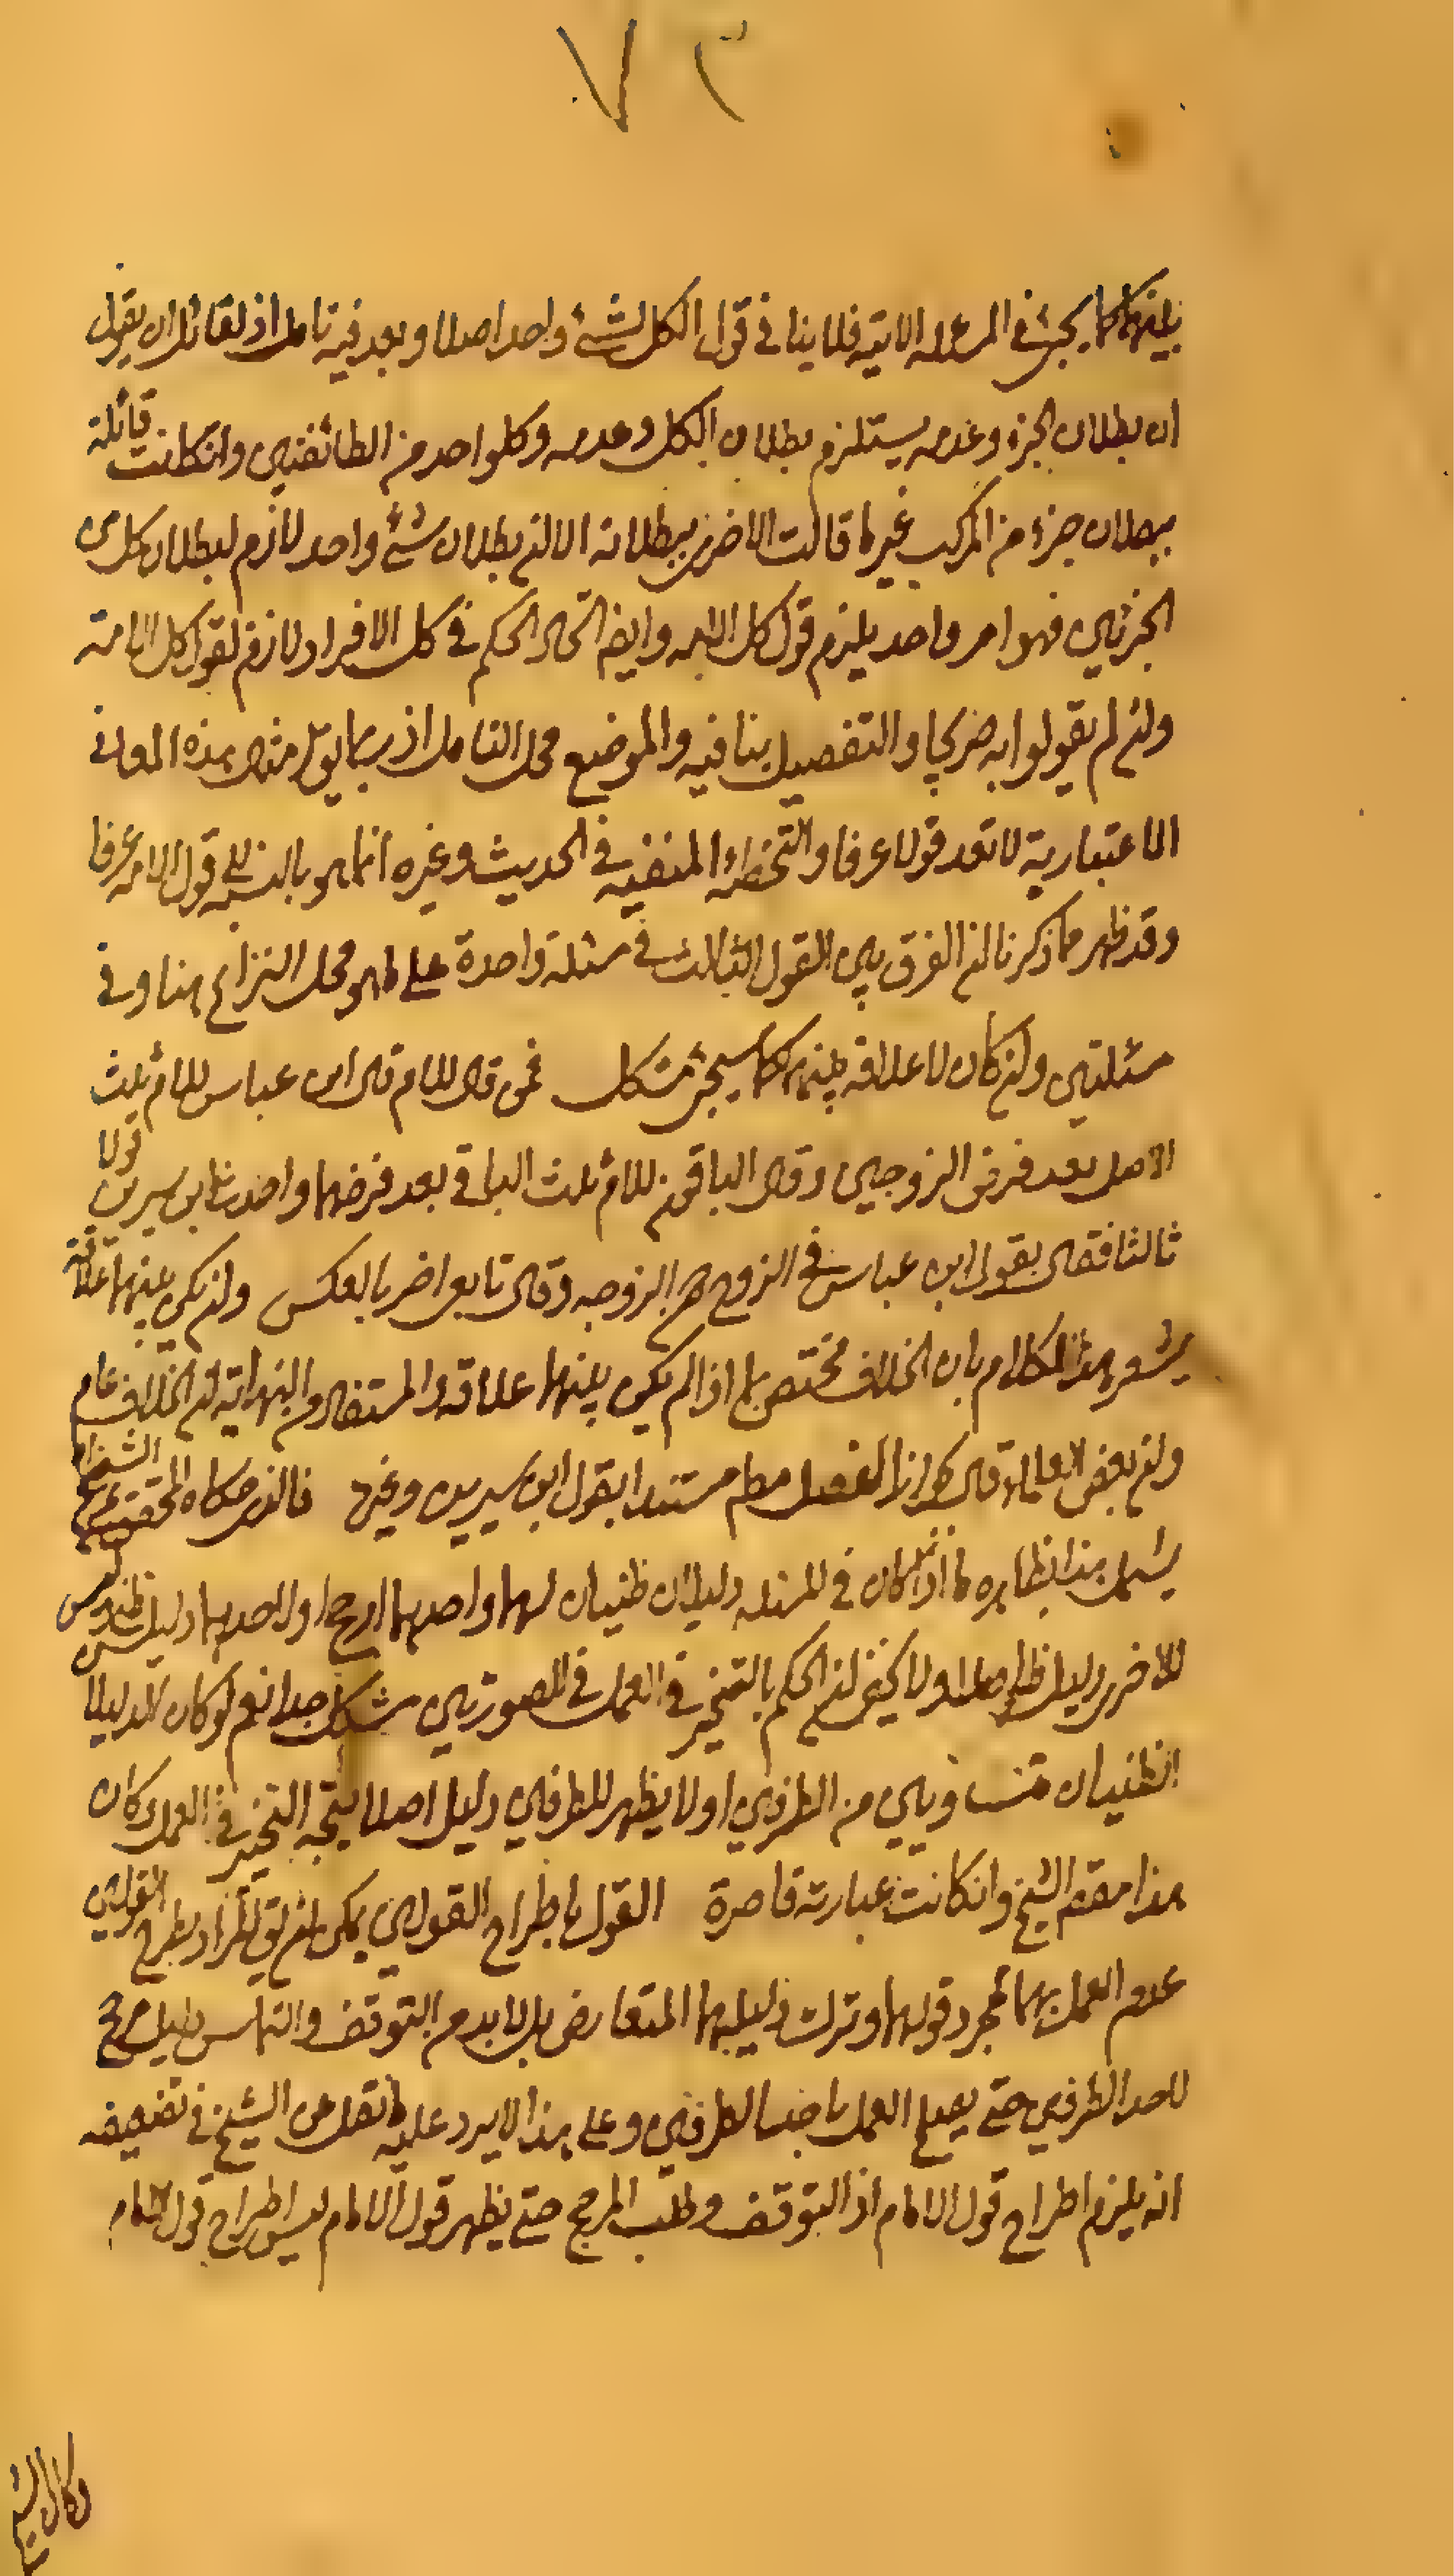 ٧٢
بينهما كما يجئ في المسئلة الاتية فلا ينافي قول الكل لشئ واحد اصلا وبعد فيه تامل اذ لقائل ان يقول
ان بطلان الجزء وعدمه يستلزم بطلان الكل وعدمه وكل واحد من الطائفتين وانكانت قائلة
ببطلان جزء من المركب غير ما قالت الاخرى ببطلانه الا ان بطلان شئ واحد لازم لبطلان كل من
الجزئين فهو امر واحد يلزم قول كل الامة وايضا اتحاد الحكم في كل الافراد لازم لقول كل الامة
وان لم يقولوا به صريحا والتفصيل ينافيه والموضع محل التامل اذ ربما يق مثل هذه المعاني
الاعتبارية لا تعد قولا عرفا والتخطئة المنفية في الحديث وغيره انما هو بالنسبة الى قول الامة عرفا
وقد ظهر مما ذكرنا ان الفرق بين القول الثالث في مسئلة واحدة على ما هو محل النزاع هنا وفي
مسئلتين وان كان لا علاقة بينهما كما سيجئ مشكل فمن قال للام قال ابن عباس للام ثلث
الاصل بعد فرض الزوجين وقال الباقون للام ثلث الباقي بعد فرضهما واحدث ابن سيرين قولا
ثالثا فقال بقول ابن عباس في الزوج دون الزوجه وقال تابعي اخر بالعكس وان لم يكن بينهما علاقة
يشعر هذا الكلام بان الخلاف مختص بما اذا لم يكن بينهما علاقة والمستفاد من النهاية ان الخلاف عام
وان بعض العلماء قال بجواز الفصل مطلقا مستندا بقول ابن سيرين وغيره فالذي حكاه المحقق عن الشيخ
يشمل هذا بظاهره ما اذا كان في المسئلة دليلان ظنيان لهما واحدهما ارجح او لاحدهما دليل ظني وليس
للاخرى دليل ظني اصلا ولا يخفى ان الحكم بالتخيير في العمل في الصورتين مشكل جدا نعم لو كان الدليلان
الظنيان متساويين من الطرفين او لا يظهر للطرفين دليل اصلا يتجه التخيير في العمل وكان
هذا مقصد الشيخ وانكانت عبارته قاصرة القول باطراح القولين يمكن ان يق المراد بطرح القولين
عدم العمل بهما بمجرد قولهما وترك دليليهما المتعارض بل لابد من التوقف والتماس دليل مرجح
لاحد الطرفين حتى يصلح العمل باحد الطرفين وعلى هذا لا يرد عليه ما نقل عن الشيخ في تضعيفه
انه يلزم اطراح قول الامام اذ التوقف وطلب المرجح حتى يظهر قول الامام ليس اطراح قول الامام